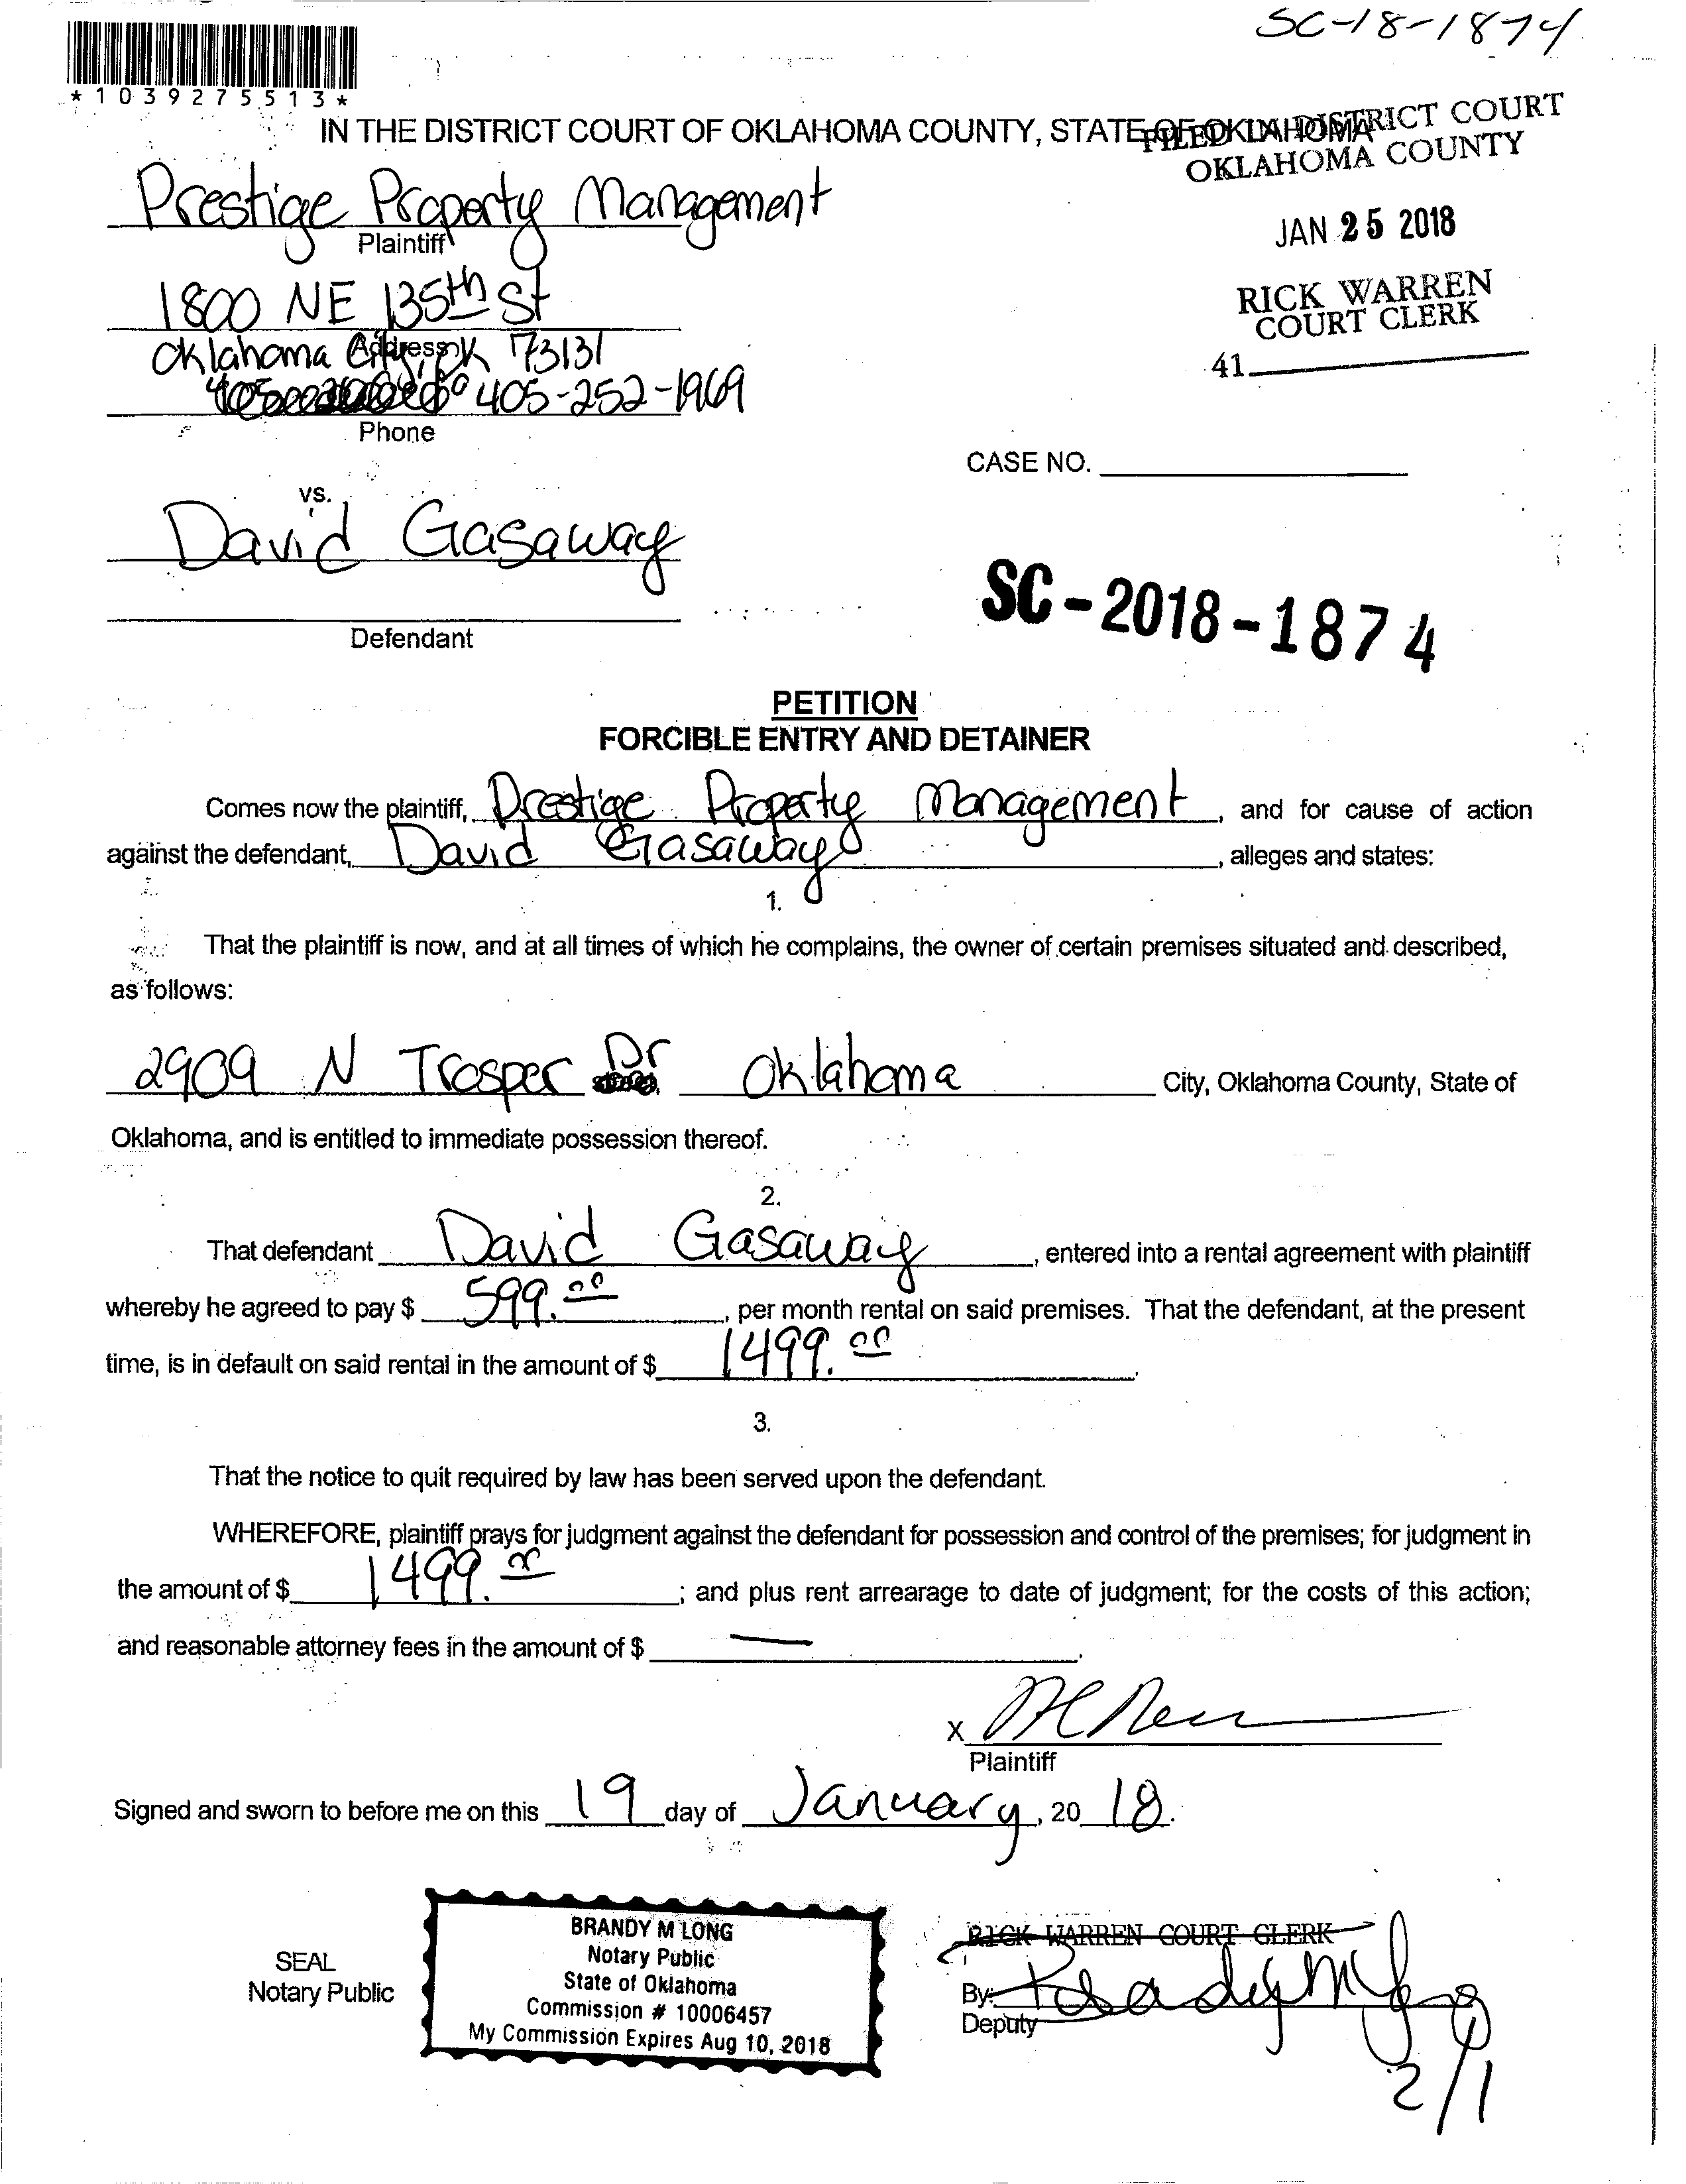 SC-18-1874
*1039275513*
IN THE DISTRICT COURT OF OKLAHOMA COUNTY, STATE OF OKLAHOMA
FILED IN DISTRICT COURT
OKLAHOMA COUNTY
Prestige Property Management
Plaintiff
JAN 25 2018
1800 NE 135th St
RICK WARREN
COURT CLERK
Address
Oklahoma City, OK 73131
41
405-252-1969
Phone
CASE NO.
vs.
David Gasaway
SC-2018-1874
Defendant
PETITION
FORCIBLE ENTRY AND DETAINER
Comes now the plaintiff, Prestige Property Management, and for cause of action
against the defendant, David Gasaway, alleges and states:
1.
That the plaintiff is now, and at all times of which he complains, the owner of certain premises situated and described,
as follows:
2909 N Trosper Dr Oklahoma City, Oklahoma County, State of
Oklahoma, and is entitled to immediate possession thereof.
2.
That defendant David Gasaway, entered into a rental agreement with plaintiff
whereby he agreed to pay $ 599.00, per month rental on said premises. That the defendant, at the present
time, is in default on said rental in the amount of $ 1499.00.
3.
That the notice to quit required by law has been served upon the defendant.
WHEREFORE, plaintiff prays for judgment against the defendant for possession and control of the premises; for judgment in
the amount of $ 1499.00; and plus rent arrearage to date of judgment; for the costs of this action;
and reasonable attorney fees in the amount of $ —.
X
Plaintiff
Signed and sworn to before me on this 19 day of January, 20 18.
BRANDY M LONG
Notary Public
State of Oklahoma
Commission # 10006457
My Commission Expires Aug 10, 2018
SEAL
Notary Public
RICK WARREN COURT CLERK
By:
Deputy
2/1